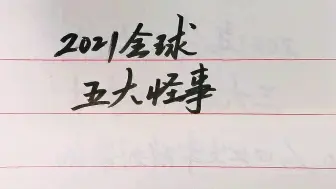 2021全球
五大怪事